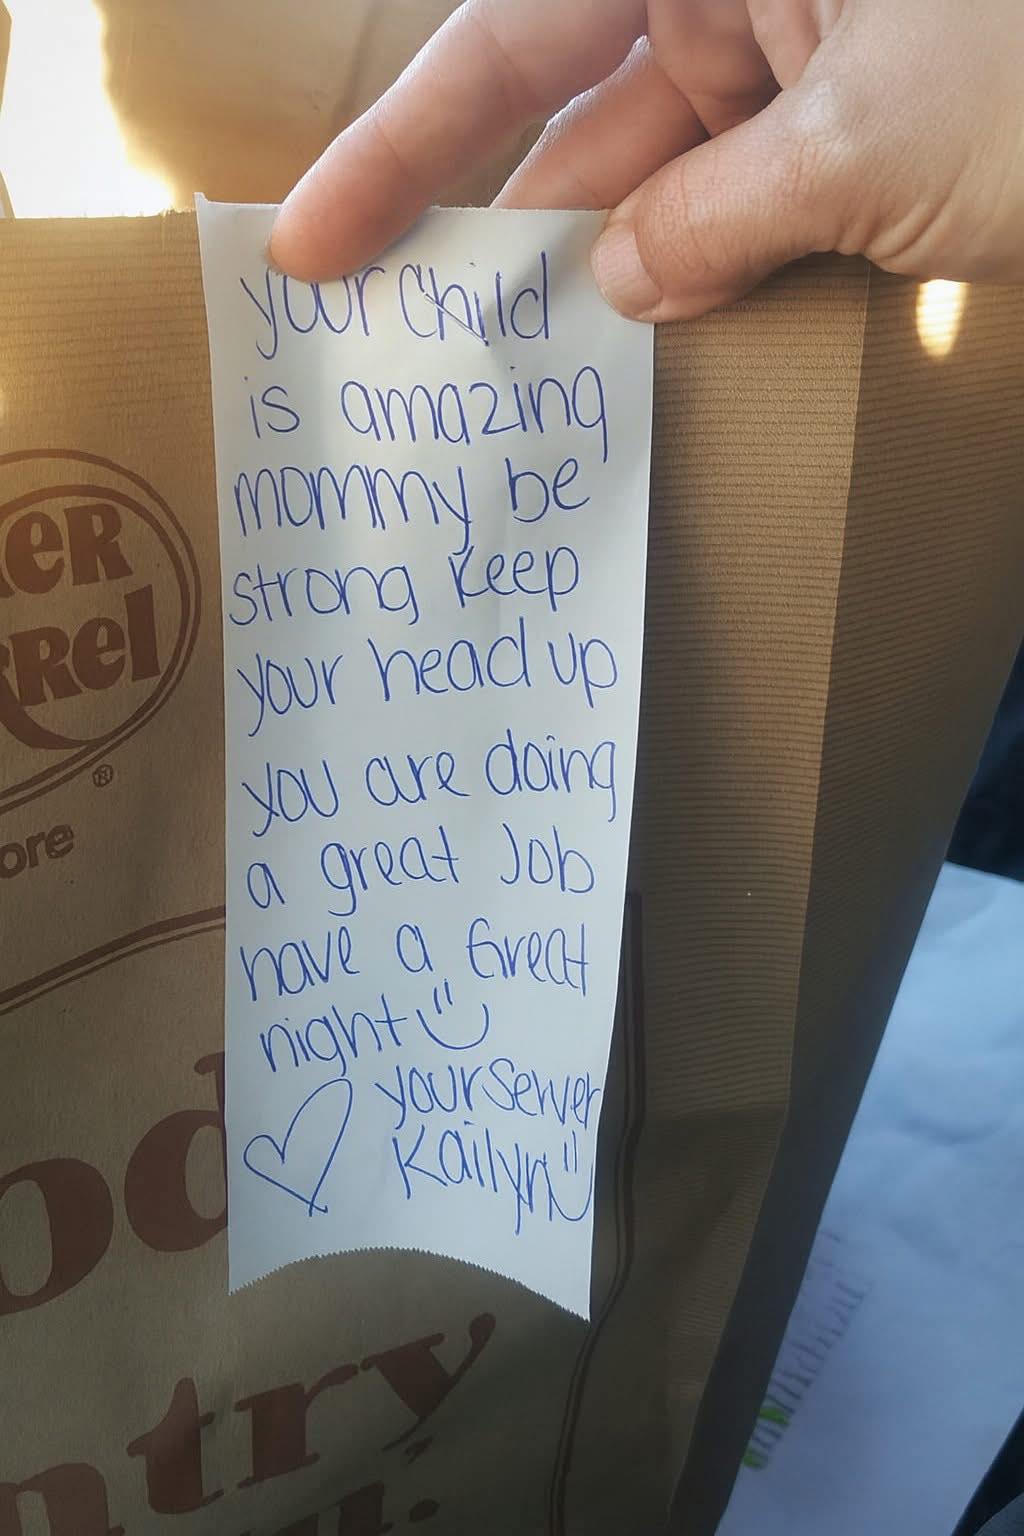 your child
is amazing
mommy be
strong keep
your head up
you are doing
a great Job
have a Great
night
your server
Kailyn
ER
RRel
®
ore
od
ntry